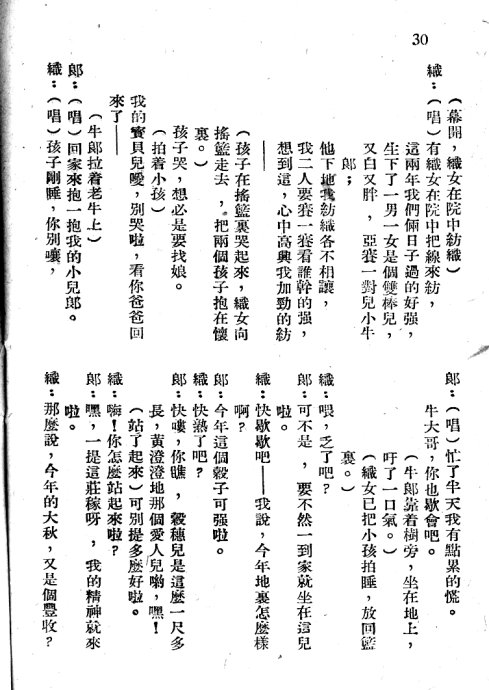 30
（幕開，織女在院中紡織）
織：（唱）有織女在院中把線來紡，
這兩年我們倆日子過的好强，
生下了一男一女是個雙棒兒，
又白又胖，亞賽一對兒小牛
郎；
他下地我紡織各不相讓，
我二人要賽一賽看誰幹的强，
想到這，心中高興我加勁的紡
——
（孩子在搖籃裏哭起來，織女向
搖籃走去，把兩個孩子抱在懷
裏。）
孩子哭，想必是要找娘。
（拍着小孩）
我的寶貝兒噯，別哭啦，看你爸爸回
來了——
（牛郎拉着老牛上）
郎：（唱）回家來抱一抱我的小兒郎。
織：（唱）孩子剛睡，你別嚷，
郎：（唱）忙了半天我有點累的慌。
牛大哥，你也歇會吧。
（牛郎靠着樹旁，坐在地上，
吁了一口氣。）
（織女已把小孩拍睡，放回籃
裏。）
織：喂，乏了吧？
郎：可不是，要不然一到家就坐在這兒
啦。
織：快歇歇吧——我說，今年地裏怎麼樣
啊？
郎：今年這個穀子可强啦。
織：快熟了吧？
郎：快嘍，你瞧，穀穗兒是這麼一尺多
長，黃澄澄地那個愛人兒喲，嘿！
（站了起來）可別提多麼好啦。
織：嗨！你怎麼站起來啦？
郎：嘿，一提這莊稼呀，我的精神就來
啦。
織：那麼說，今年的大秋，又是個豐收？